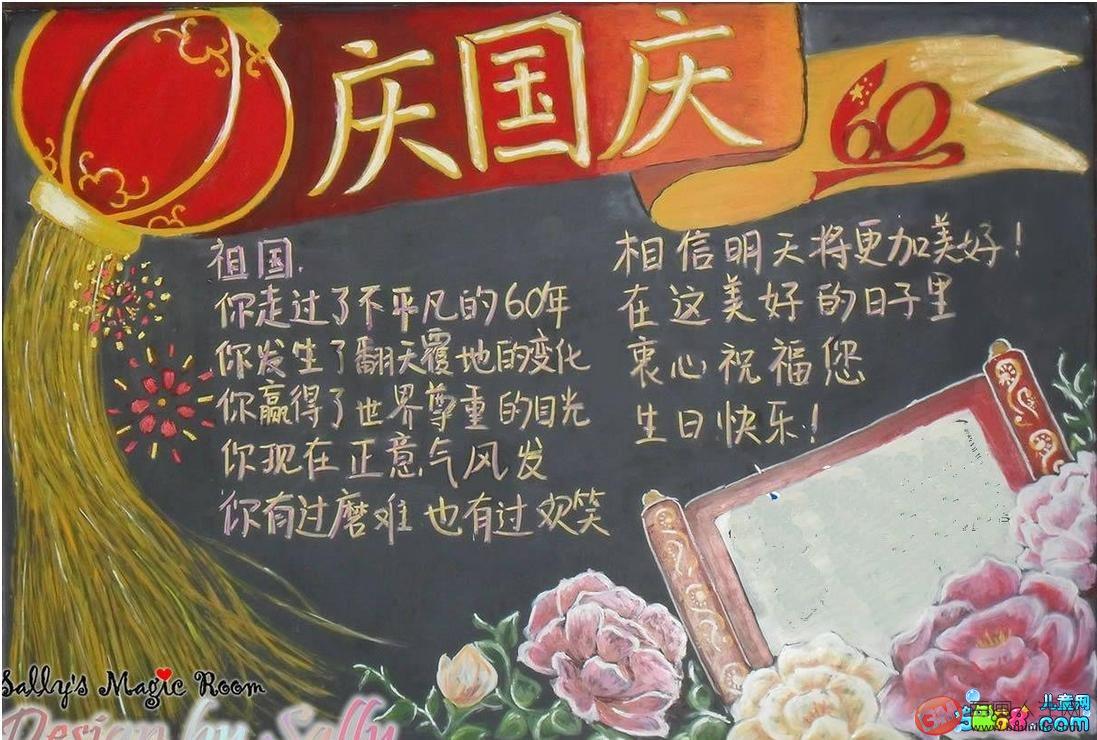 庆国庆
60
祖国.
你走过了不平凡的60年
你发生了翻天覆地的变化
你赢得了世界尊重的目光
你现在正意气风发
你有过磨难也有过欢笑
相信明天将更加美好!
在这美好的日子里
衷心祝福您
生日快乐!
Sally's Magic Room
Design by Sally
儿童网
.com